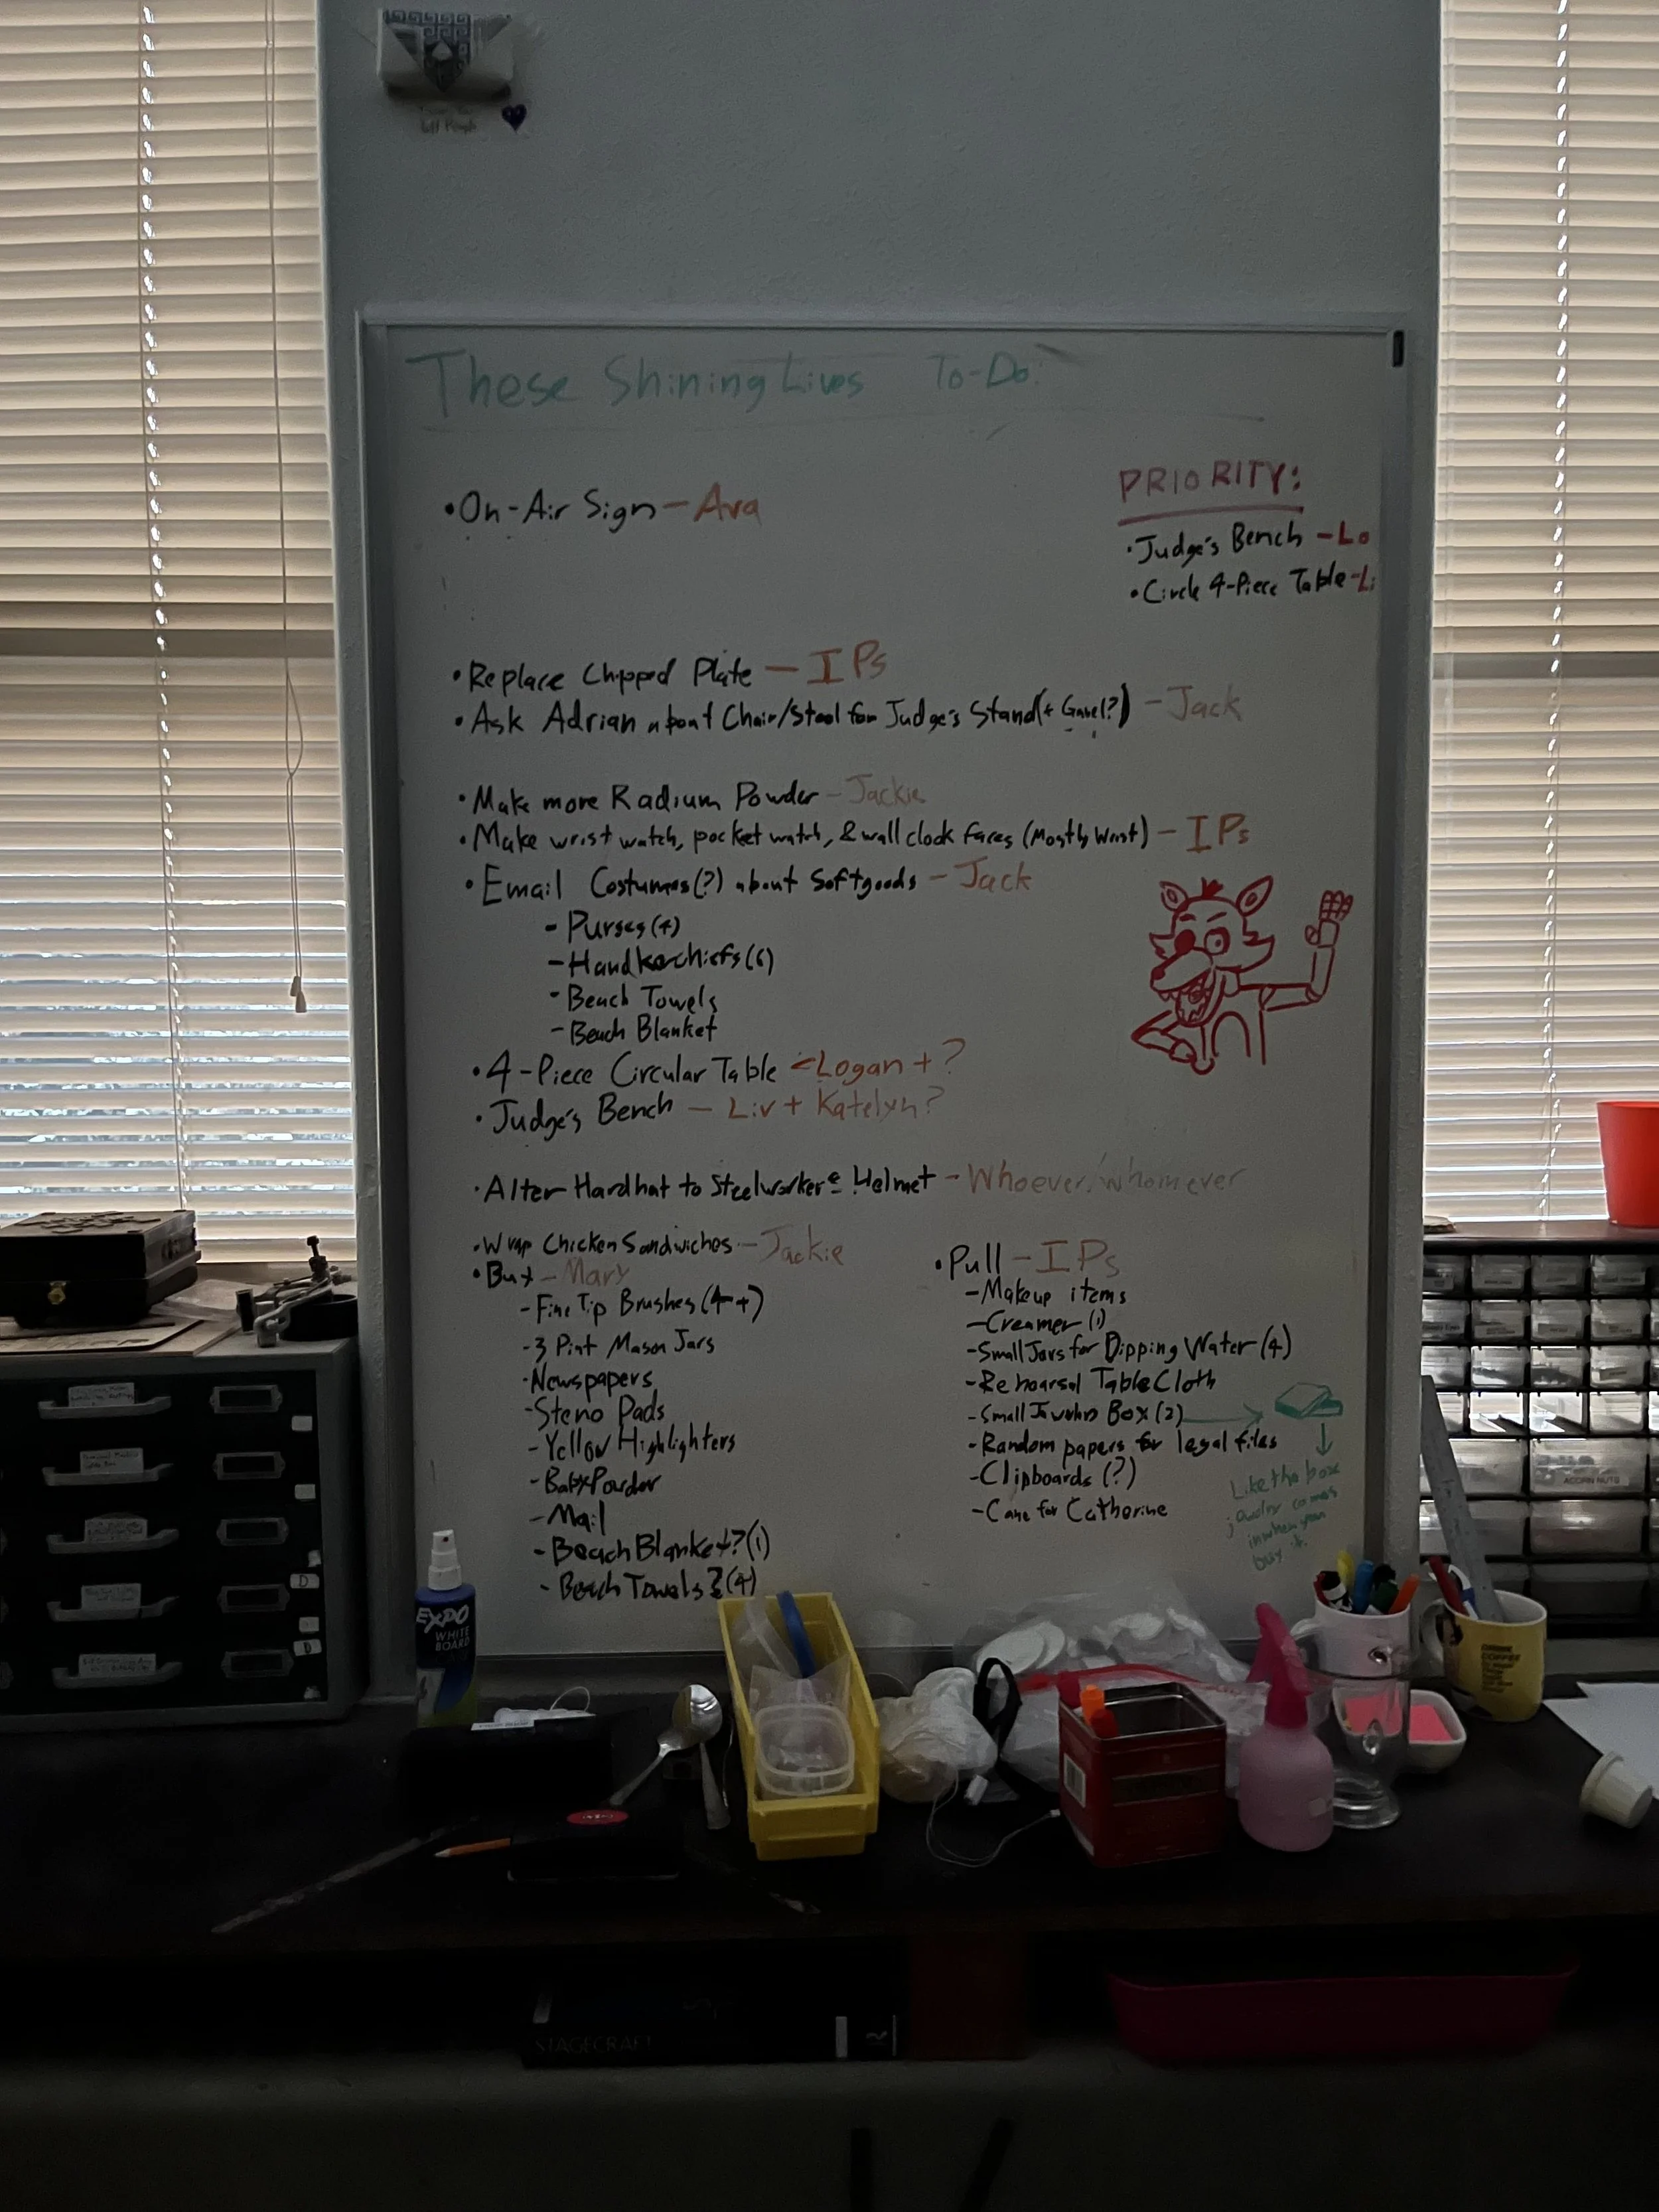 These Shining Lives To-Do:
PRIORITY:
• Judge's Bench - Lo
• Circle 4-Piece Table - Li
• On-Air Sign - Ava
• Replace Chipped Plate - IPs
• Ask Adrian about Chair/Stool for Judge's Stand (+ Gavel?) - Jack
• Make more Radium Powder - Jackie
• Make wrist watch, pocket watch, & wall clock faces (Mostly Wrist) - IPs
• Email Costumes(?) about Softgoods - Jack
- Purses (4)
- Handkerchiefs (6)
- Beach Towels
- Beach Blanket
• 4-Piece Circular Table - Logan + ?
• Judge's Bench - Liv + Katelyn?
• Alter Hardhat to Steelworkers Helmet - Whoever/whomever
• Wrap Chicken Sandwiches - Jackie
• Buy - Mary
- Fine Tip Brushes (4+)
- 3 Pint Mason Jars
- Newspapers
- Steno Pads
- Yellow Highlighters
- Baby Powder
- Mail
- Beach Blanket? (1)
- Beach Towels? (4)
• Pull - IPs
- Makeup items
- Creamer (1)
- Small Jars for Dipping Water (4)
- Rehearsal TableCloth
- Small Jewelry Box (2)
- Random papers for legal files
- Clipboards (?)
- Cane for Catherine
Like the box
jewelry comes
in when you
buy it.
EXPO
WHITE
BOARD
ACORN NUTS
COFFEE
STAGECRAFT